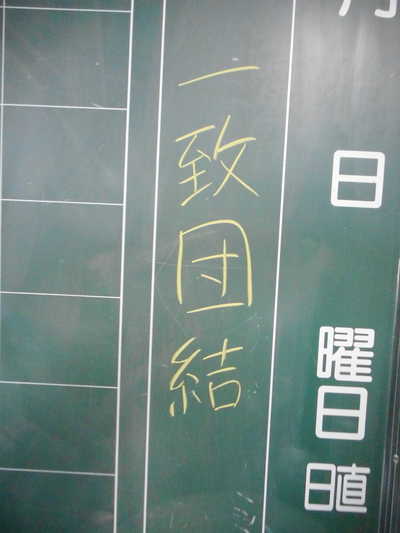 月
日
曜日
日直
一致団結